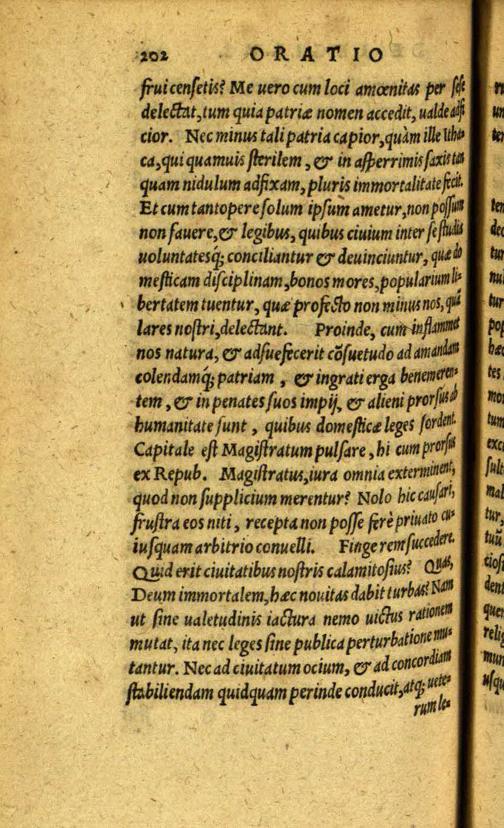 202 ORATIO
frui censetis? Me uero cum loci amœnitas per ſeſe
delectat, tum quia patriæ nomen accedit, ualde adfi
cior. Nec minus tali patria capior, quàm ille Itha-
ca, qui quamuis ſterilem, & in aſperrimis ſaxis tan
quam nidulum adfixam, pluris immortalitate fecit.
Et cum tantopere ſolum ipſum ametur, non poſſum
non fauere, & legibus, quibus ciuium inter ſe ſtudia
uoluntatesq́; conciliantur & deuinciuntur, quæ do
meſticam diſciplinam, bonos mores, popularium li-
bertatem tuentur, quæ profecto non minus nos, quã
lares noſtri, delectant. Proinde, cum inflammet
nos natura, & adſuefecerit cõſuetudo ad amandam
colendamq́; patriam, & ingrati erga benemeren-
tem, & in penates ſuos impij, & alieni prorſus ab
humanitate ſunt, quibus domeſticæ leges ſordent.
Capitale eſt Magiſtratum pulſare, hi cum prorſus
ex Repub. Magiſtratus, iura omnia exterminent,
quod non ſupplicium merentur? Nolo hic cauſari,
fruſtra eos niti, recepta non poſſe ferè priuato cu-
iuſquam arbitrio conuelli. Finge rem ſuccedere.
Quid erit ciuitatibus noſtris calamitoſius? Quas,
Deum immortalem, hæc nouitas dabit turbas? Nam
ut ſine ualetudinis iactura nemo uictus rationem
mutat, ita nec leges ſine publica perturbatione mu-
tantur. Nec ad ciuitatum ocium, & ad concordiam
ſtabiliendam quidquam perinde conducit, atq; uete-
rum le-